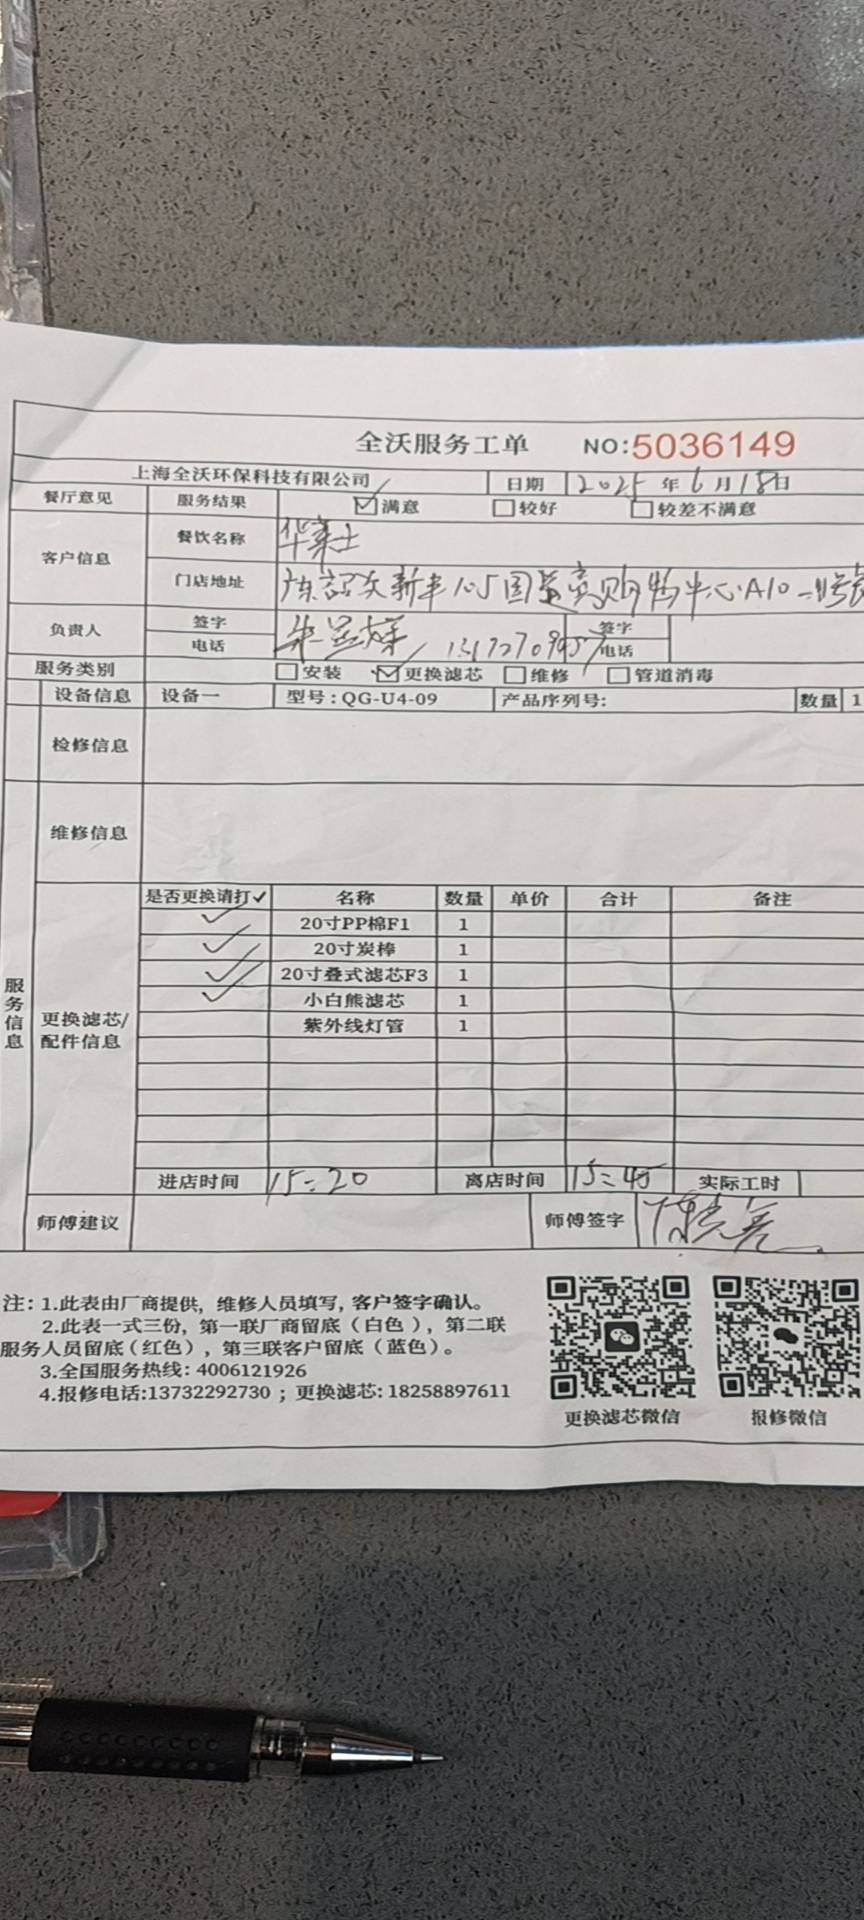 全沃服务工单 NO:5036149
上海全沃环保科技有限公司 日期 2025年6月18日
餐厅意见 服务结果 满意 较好 较差不满意
客户信息 餐饮名称 华莱士
门店地址 新丰105国道 购物中心A10
负责人 签字 签字
电话 电话
服务类别 安装 更换滤芯 维修 管道消毒
设备信息 设备一 型号:QG-U4-09 产品序列号: 数量 1
检修信息
维修信息
服务信息
更换滤芯/配件信息
是否更换请打✓ 名称 数量 单价 合计 备注
✓ 20寸PP棉F1 1
✓ 20寸炭棒 1
✓ 20寸叠式滤芯F3 1
✓ 小白熊滤芯 1
紫外线灯管 1
进店时间 15:20 离店时间 15:45 实际工时
师傅建议 师傅签字
注:1.此表由厂商提供,维修人员填写,客户签字确认。
2.此表一式三份,第一联厂商留底(白色),第二联
服务人员留底(红色),第三联客户留底(蓝色)。
3.全国服务热线:4006121926
4.报修电话:13732292730;更换滤芯:18258897611
更换滤芯微信 报修微信